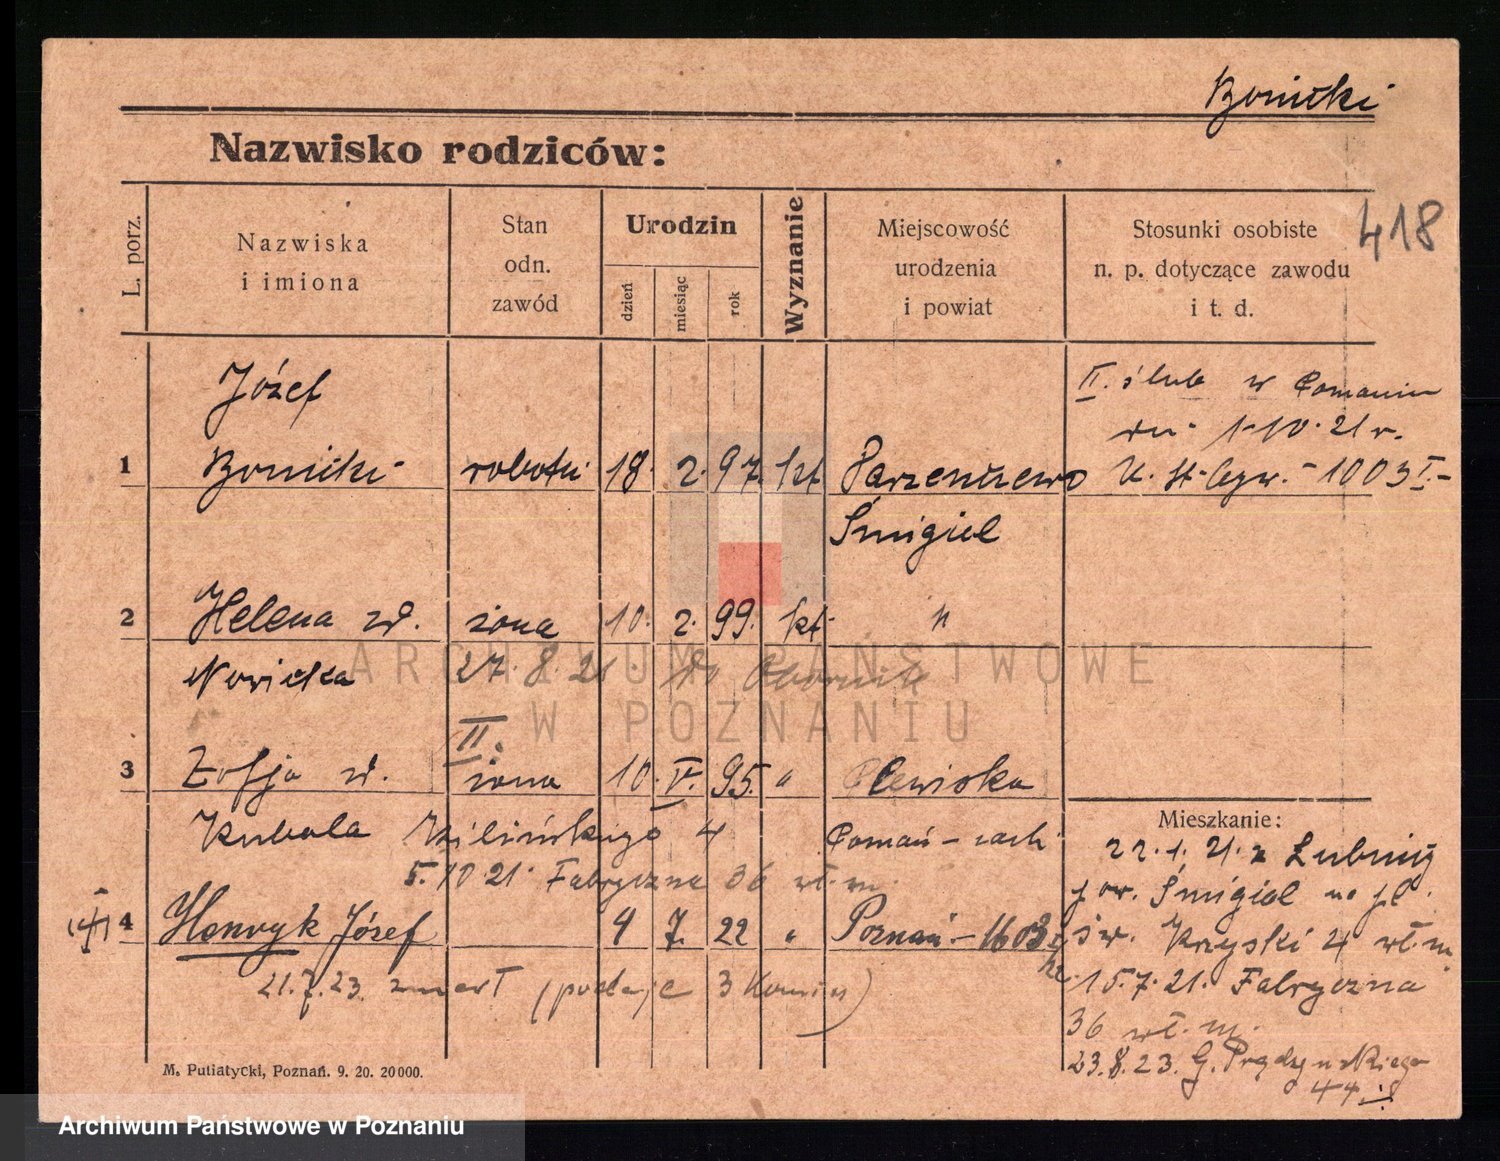 Bonicki
Nazwisko rodziców:
418
L. porz.
Nazwiska
i imiona
Stan
odn.
zawód
Urodzin
dzień
miesiąc
rok
Wyznanie
Miejscowość
urodzenia
i powiat
Stosunki osobiste
n. p. dotyczące zawodu
i t. d.
Józef
1 Bonicki robotn. 18. 2. 97. kt
Śmigiel
II. ślub w Poznaniu
dn. 1-10.21 r.
1003 I.
2 Helena zd. żona 10. 2. 99. kt. "
Nowicka 27. 8. 21. do
II.
3 Zofja zd. żona 10. V. 95. " Plewiska
Kubala Kilińskiego 4 Poznań-zach
5.10 21. Fabryczna 36 wł. m.
4 Henryk Józef 4 7. 22 " Poznań - 1603
21.7.23. zmarł (podaje 3 Komis)
Mieszkanie:
22.1.21. z
pow. Śmigiel na pl.
św. Krzyski 4 wł. m.
15.7.21. Fabryczna
36 wł. m.
23.8.23. G. Prądzyńskiego
44
M. Putiatycki, Poznań. 9. 20. 20000.
ARCHIWUM PAŃSTWOWE
W POZNANIU
Archiwum Państwowe w Poznaniu